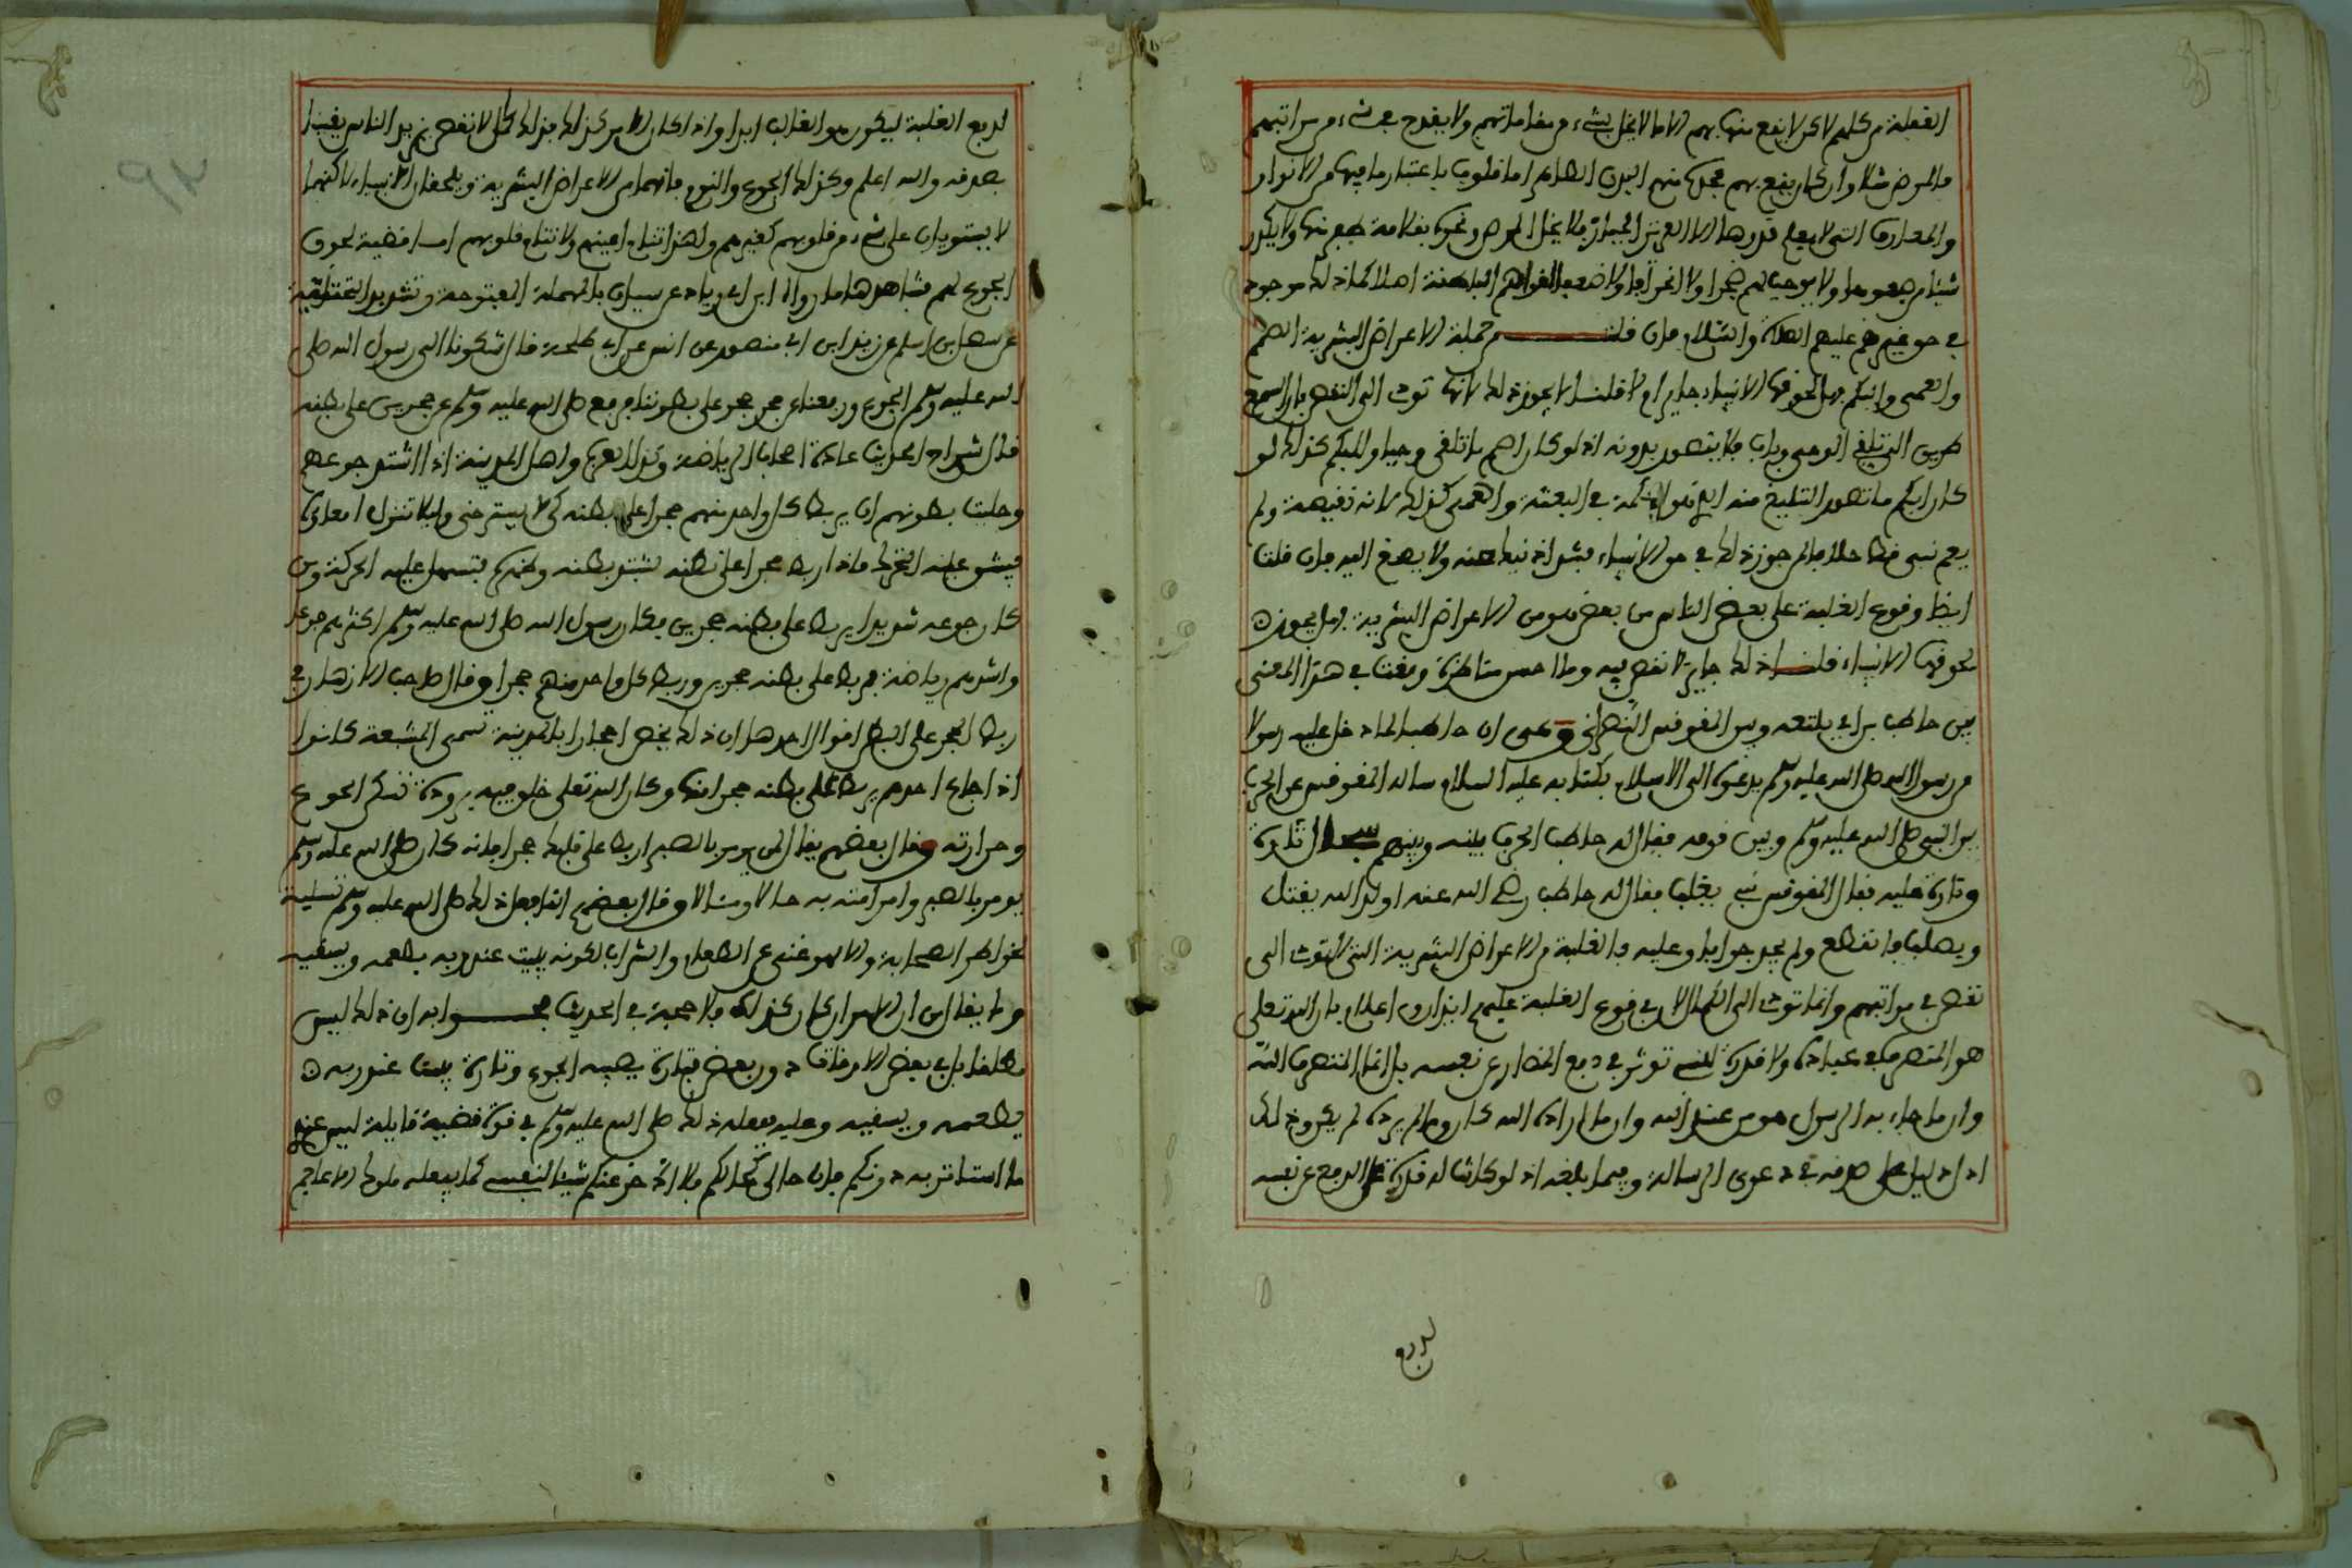 الغفلة من كلهم لاكن لا يقع منها بهم الا ما لا يخل بشيء من مقاماتهم ولا يقدح في شيء من مراتبهم
فالمرض مثلا وان كان يقع بهم فحده منهم البدن الظاهر اما قلوب باعتبار ما فيها من الانوار
والمعارف التي لا يعلم قدرها الا العزيز الجبار فلا يخل المرض ونحوه بقلامة ظفر منها ولا يكدر
شيئا من صفوها ولا يوجب لهم ضجرا ولا انحرافا ولا ضعفا لقواهم الباطنة اصلا كما ذلك موجود
في حق غيرهم عليهم الصلاة والسلام فان قلت من جملة الاعراض البشرية الصمم
والعمى والبكم فهل لحوقها الانبياء جايز ام لا قلنا لا يجوز ذلك لانها تودي الى النقص فان السمع
طريق التلقي الوحي وبابه فلا يتصور بدونه اذ لو كان اصم ما تلقى وحيا وللبكم كذلك لو
كان ابكم ما تصور التبليغ منه لفوات الحكمة في البعثة والعمى كذلك لانه نقيصة ولم
يعم نبي قط خلافا لمن جوز ذلك في حق الانبياء فشذ اذ نبذ عنه ولا يصغ اليه فان قلت
ايضا وقوع الغلبة على بعض الناس من بعض هو من الاعراض البشرية فهل يجوز
لحوقها الانبياء قلت ذلك جايز لا نقص فيه وما احسن مناظرة وقعت في هذا المعنى
بين حاطب بن ابي بلتعة وبين المقوقس النصراني وهي ان حاطبا لما دخل عليه رسولا
من رسول الله صلى الله عليه وسلم يدعوه الى الاسلام بكتابه عليه السلام ساله المقوقس عن الحرب
بين النبي صلى الله عليه وسلم وبين قومه فقال له حاطب الحرب بينه وبينهم سجال تارة
وتارة عليه فقال المقوقس نبي يغلب فقال له حاطب رضي الله عنه اولد الله يقتل
ويصلب فانقطع ولم يجد جوابا وعليه فالغلبة من الاعراض البشرية التي لا تودي الى
نقص في مراتبهم وانما تودي الى الكمال لان في وقوع الغلبة عليهم ايذان واعلام بان الله تعلى
هو المتصرف في عباده ولا قدرة لنبي توثر في دفع المضار عن نفسه بل انما المتصرف الله
وان ما جاء به الرسول هو من عند الله وان ما اراده الله كان وما لم يرده لم يكن وذلك
ادل دليل على صدقه في دعوى الرسالة وفيما بلغه اذ لو كانت له قدرة على الدفع عن نفسه
لدفع
لدفع الغلبة ليكون هو الغالب ابدا واذا كان الامر كذلك فذلك كمال لا نقص بل يزيد الناس يقينا
بصدقه والله اعلم وكذلك الجوع والنوم فانهما من الاعراض البشرية ويلحقان الانبياء لاكنهما
لا يستوليان على شيء من قلوبهم كغيرهم ولهذا تنام اعينهم ولا تنام قلوبهم اما قضية لحوق
الجوع لهم فشاهدها ما رواه ابن ابي زياد عن سيار بالمهملة المفتوحة وتشديد التحتية
عن سهل بن اسلم عن يزيد ابن ابي منصور عن انس عن ابي طلحة قال شكونا الى رسول الله صلى
الله عليه وسلم الجوع ورفعنا عن حجر حجر على بطوننا فرفع صلى الله عليه وسلم عن حجرين على بطنه
قال شراح الحديث عادة اصحاب الرياضة وكذا العرب واهل المدينة اذا اشتد جوعهم
وخلت بطونهم ان يربط كل واحد منهم حجرا على بطنه كي لا يسترخى وليلا تنزل امعاوه
فيشق عليه التحرك فاذا ربط حجرا على بطنه يشتد بطنه وظهره فتسهل عليه الحركة ومن
كان جوعه شديدا يربط على بطنه حجرين فكان رسول الله صلى الله عليه وسلم اكثرهم جوعا
واشدهم رياضة فربط على بطنه حجرين وربط كل واحد منهم حجرا وقال صاحب الازهار في
ربط الحجر على البطن اقوال احدها ان ذلك يخص احجارا بالمدينة تسمى المشبعة كانوا
اذا جاع احدهم يربط على بطنه حجرا منها وكان الله تعلى خلق فيه برودة تسكن الجوع
وحرارته وقال بعضهم يقال لمن يومر بالصبر اربط على قلبك حجرا فانه كان صلى الله عليه وسلم
يومر بالصبر وامر امته به حالا ومقالا وقال بعضهم انما فعل ذلك صلى الله عليه وسلم تسلية
لخواطر الصحابة والا فهو غني عن الطعام والشراب لكونه يبيت عند ربه يطعمه ويسقيه
وما يقال من ان الامر ان كان كذلك فلا حجة في الحديث فجوابه ان ذلك ليس
مطلقا بل في بعض الاوقات دون بعض فتارة يصيبه الجوع وتارة يبيت عند ربه
يطعمه ويسقيه وعليه ففعله ذلك صلى الله عليه وسلم في قوة قضية قايلة ليس عندي
ما استاثر به دونكم فان حالي كحالكم فلا ادخر عنكم شيئا لنفسي كما يفعله ملوك الاعاجم